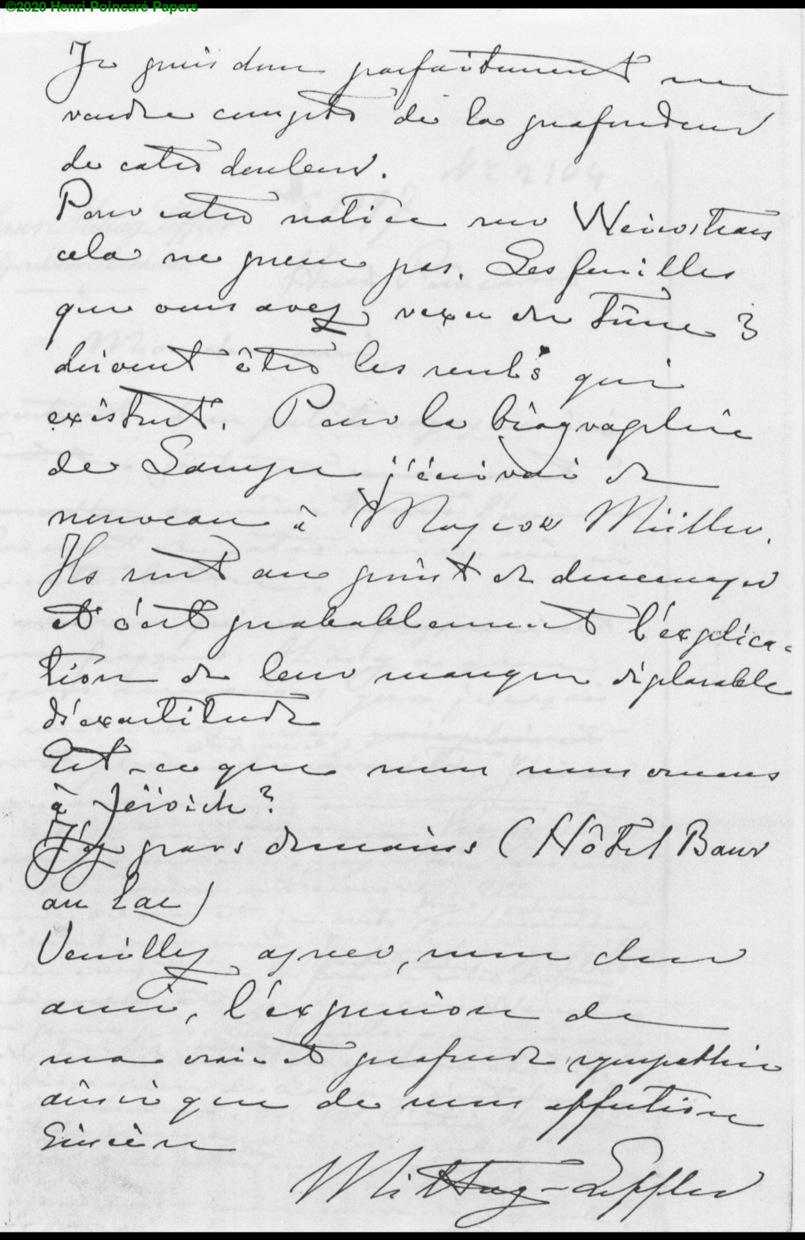 ©2020 Henri Poincaré Papers
Je puis donc parfaitement me
rendre compte de la profondeur
de cette douleur.
Pour votre notice sur Weierstrass
cela ne presse pas. Les feuilles
que vous avez reçu du tome 3
doivent être les seuls qui
existent. Pour la biographie
de j'écrirai de
nouveau à Mayer & Müller.
Ils sont au point de demenager
et c'est probablement l'explica-
tion de leur manque déplorable
d'exactitude
Est-ce que nous nous voyons
à Zürich?
J'y pars demain (Hôtel Baur
au Lac)
Veuillez agréer, mon cher
ami, l'expression de
ma vraie et profonde sympathie
ainsi que de mon affection
sincère
Mittag-Leffler